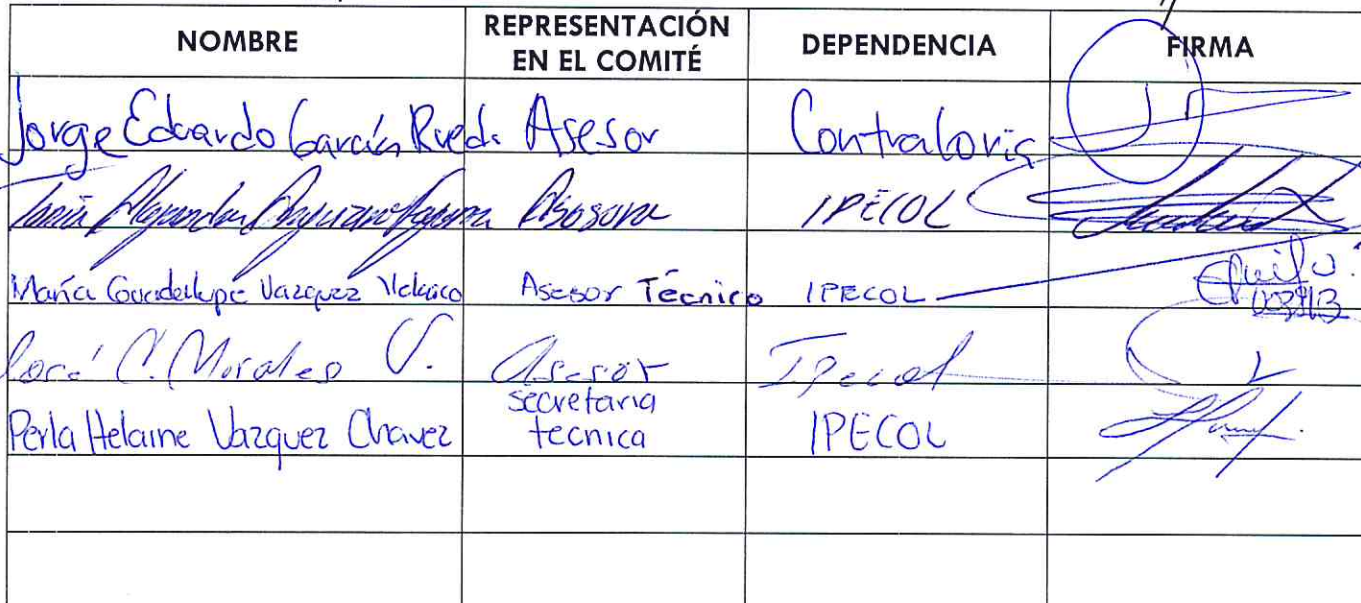 NOMBRE REPRESENTACIÓN EN EL COMITÉ DEPENDENCIA FIRMA
Jorge Eduardo García Rueda Asesor Contraloria
Tania Alejandra Asesora IPECOL
María Guadalupe Vazquez Velasco Asesor Técnico IPECOL
José C. Morales V. Asesor Ipecol
Perla Helaine Vazquez Chavez secretaria tecnica IPECOL